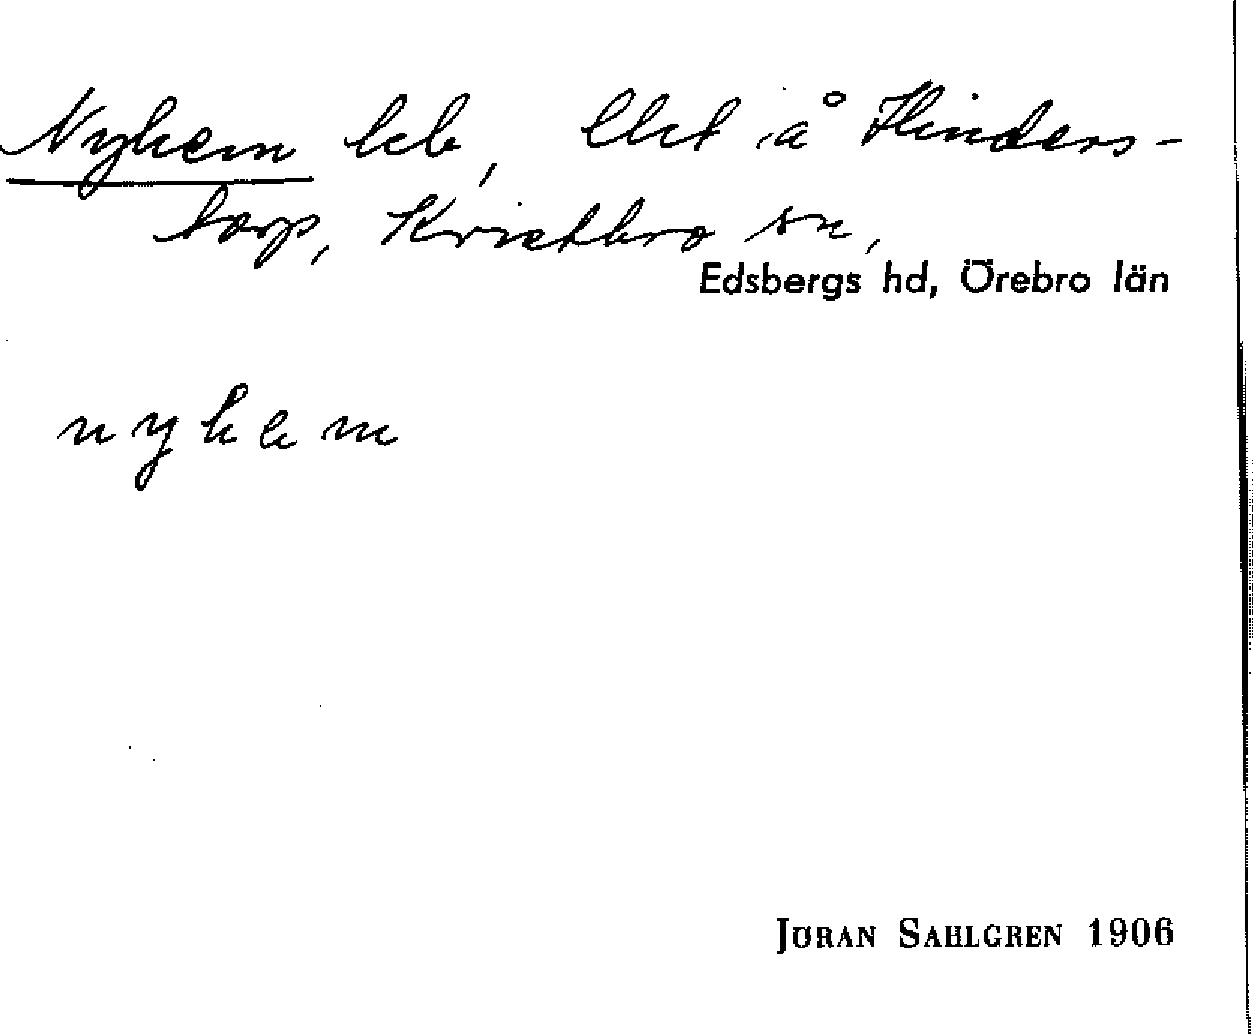 Nyhem beb, lht å Hinders-
torp, Kvistbro sn,
Edsbergs hd, Örebro län
nyhem
JÖRAN SAHLGREN 1906